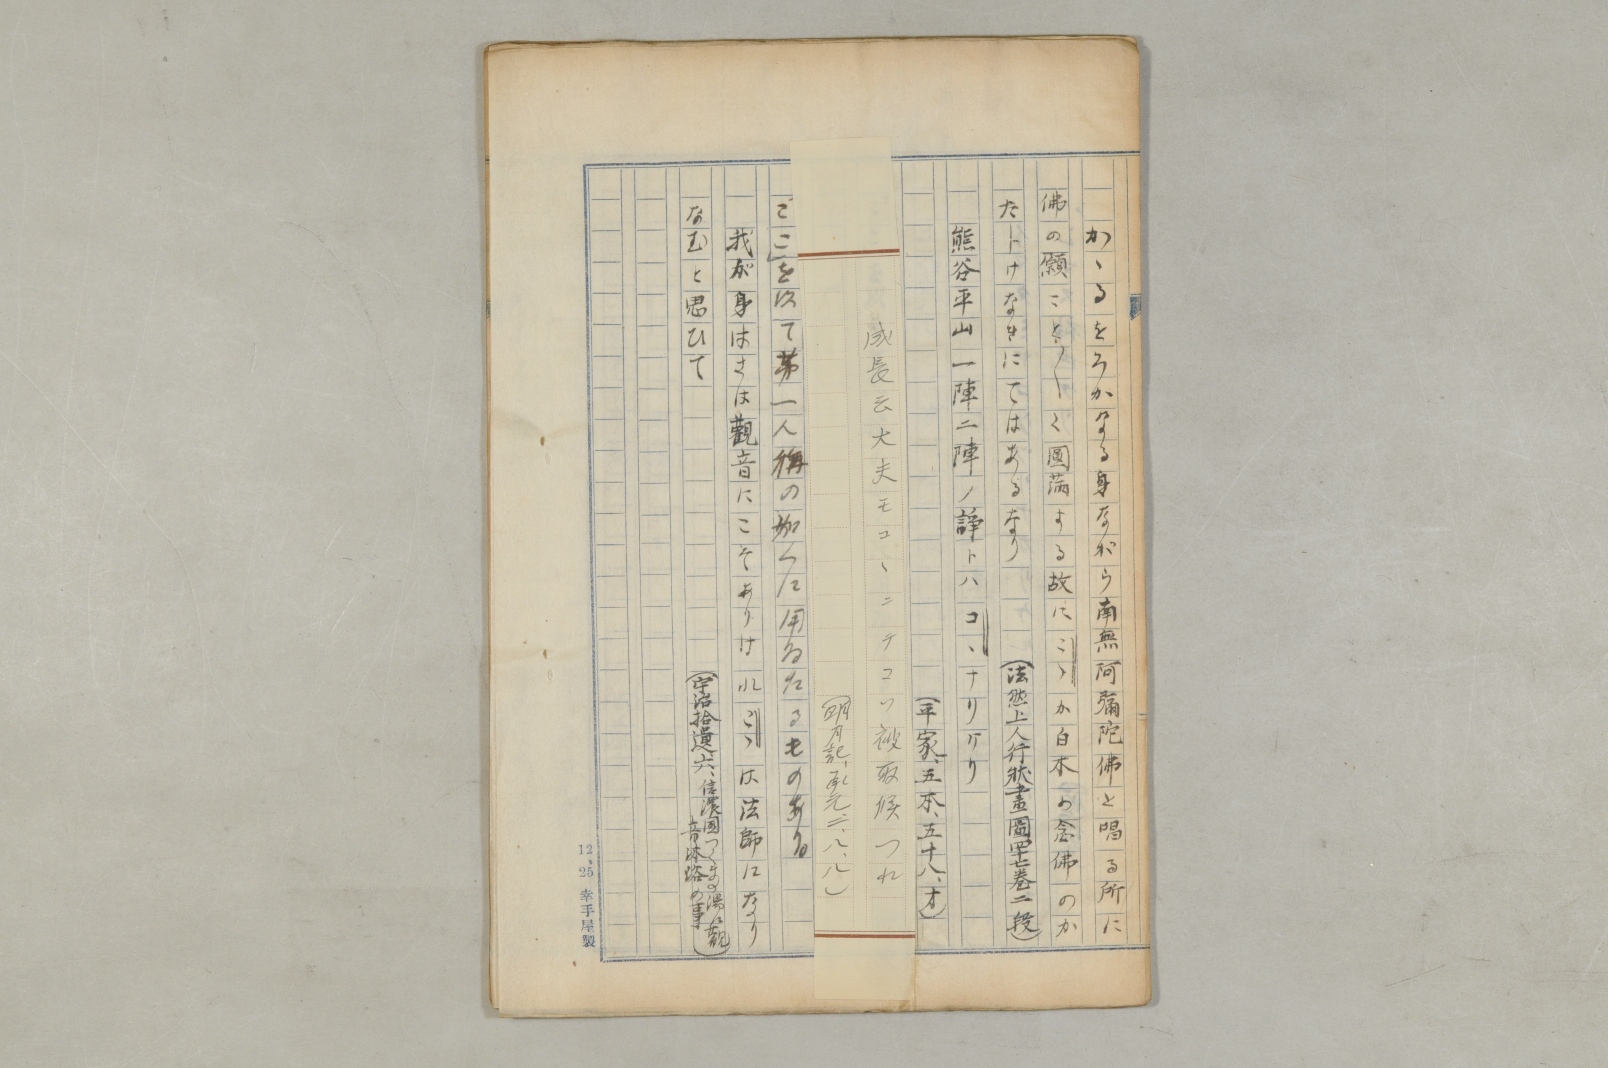 かゝるをろかなる身ながら南無阿彌陀佛と唱る所に
佛の願こと〲く圓滿する故にこゝか白木の念佛のか
たじけなきにてはあるなり
(法然上人行狀畫圖四十七卷二段)
熊谷平山一陣二陣ノ諍トハコヽナリケリ
(平家、五本、五十八、オ)
成長云大夫モコヽニテコソ被取候つれ
(明月記、承元二、八、八)
ごこを以て第一人稱の如くに用ゐたるものあり。
我が身はさは觀音にこそありけれこゝは法師になり
なむと思ひて
(宇治拾遺、六、信濃國つくまの湯に觀
音沐浴の事)
12、25 幸手屋製